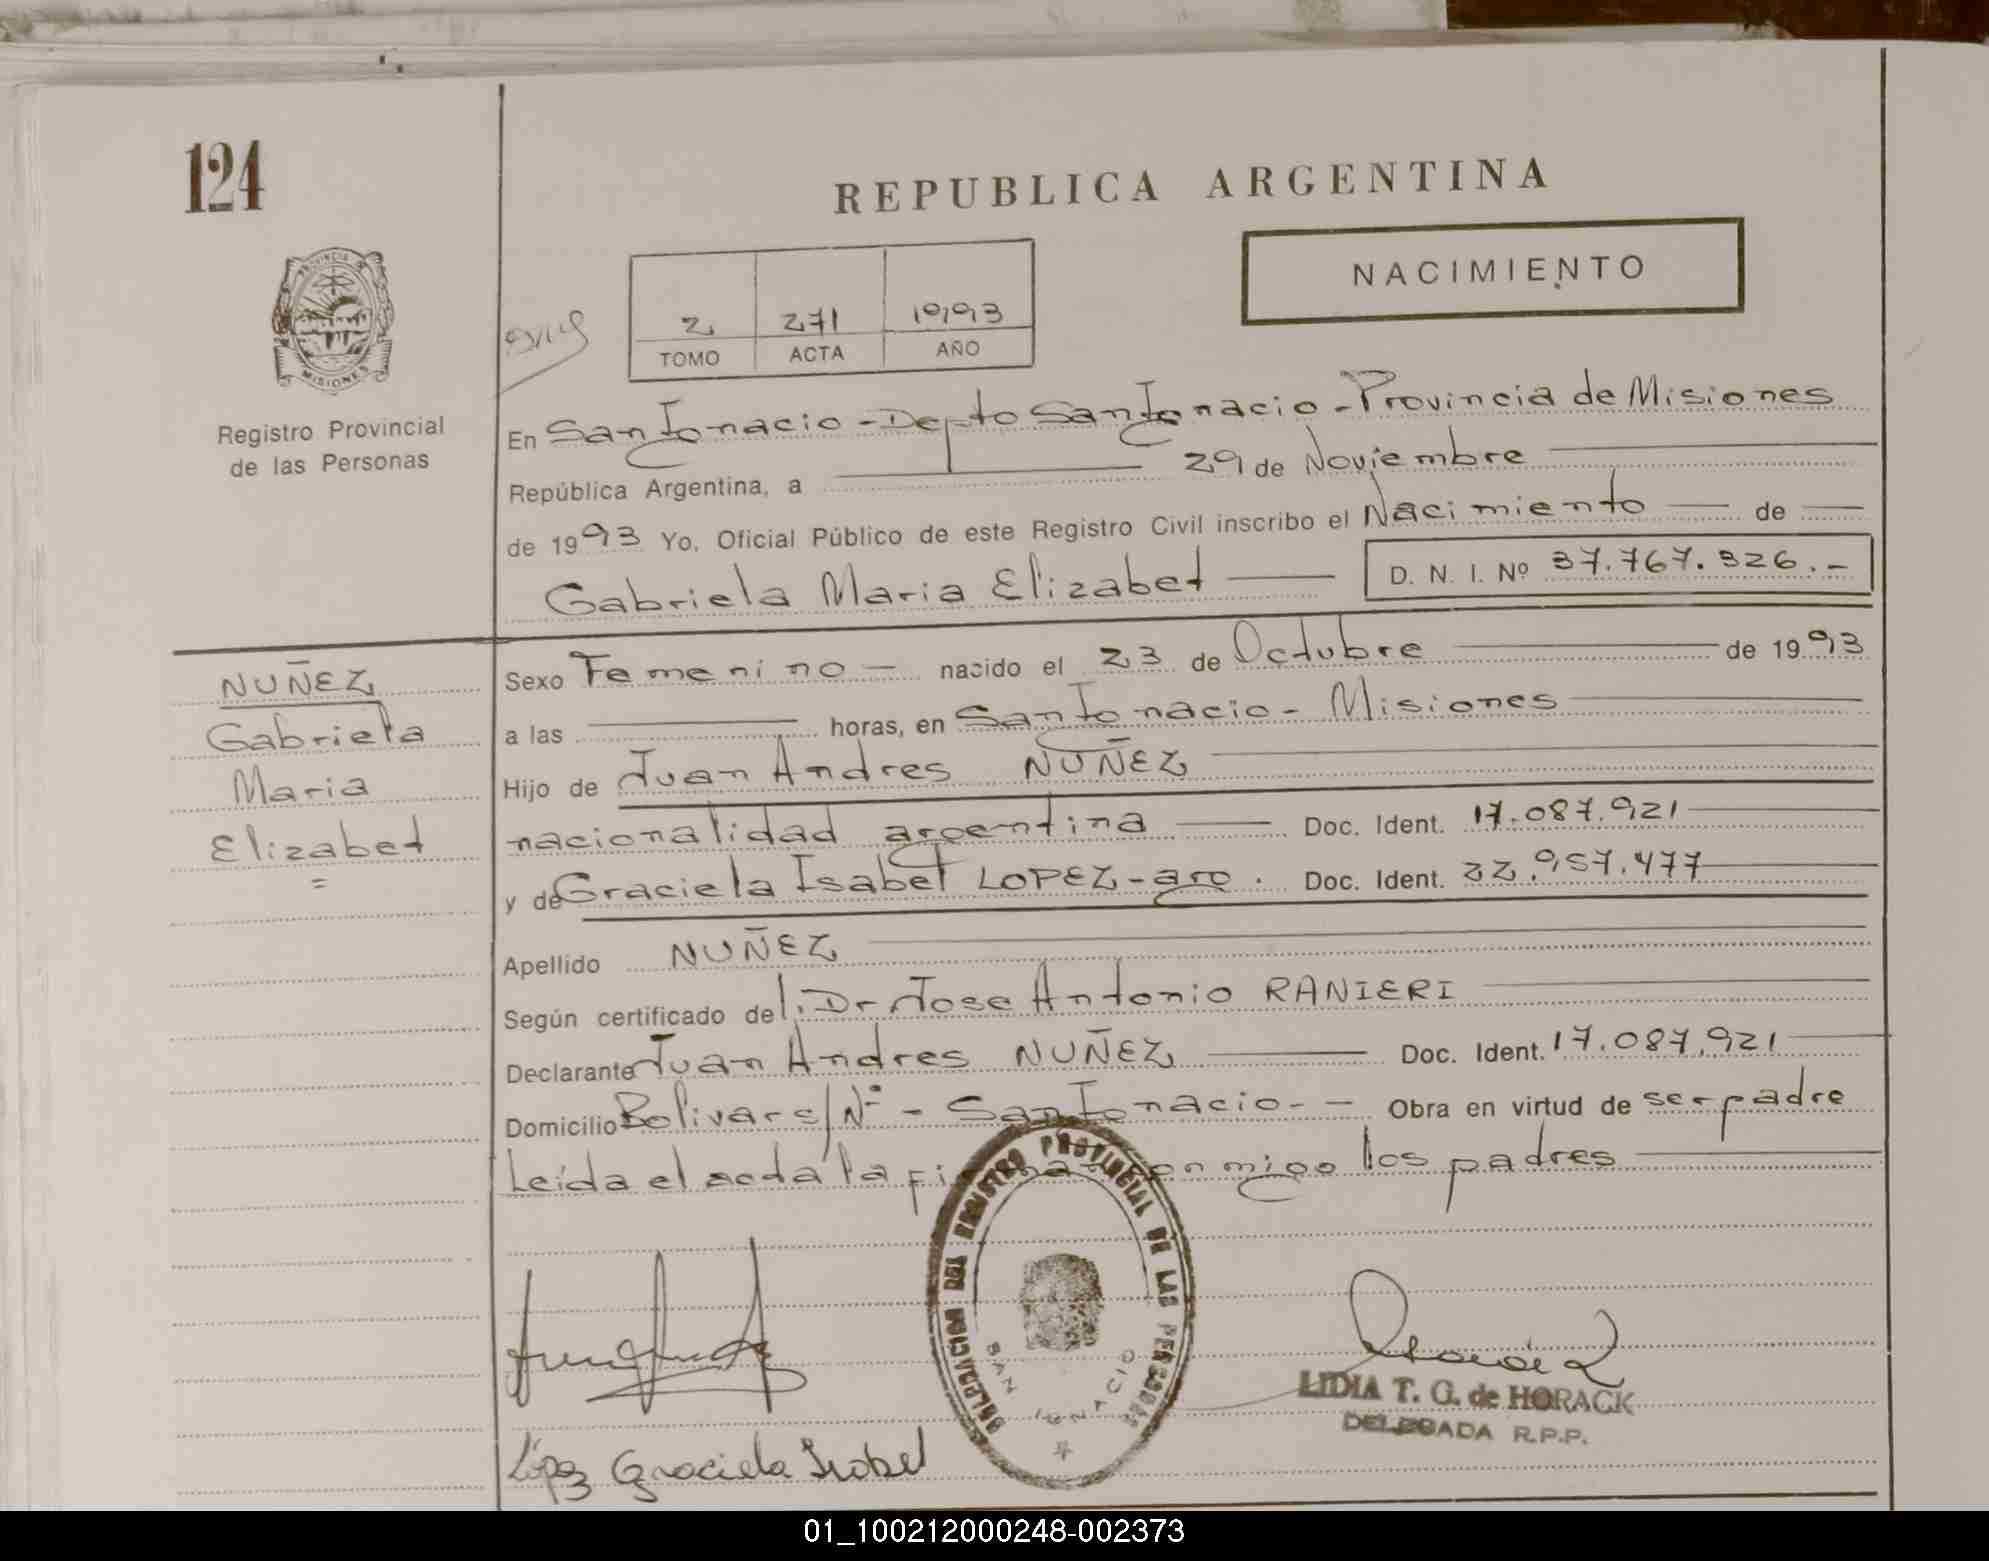 124
REPUBLICA ARGENTINA
NACIMIENTO
2 271 1993
TOMO ACTA AÑO
PROVINCIA DE
MISIONES
Registro Provincial
de las Personas
En San Ignacio - Depto San Ignacio - Provincia de Misiones
República Argentina, a 29 de Noviembre
de 1993 Yo, Oficial Público de este Registro Civil inscribo el Nacimiento de
Gabriela Maria Elizabet D. N. I. Nº 37.767.326.-
NUÑEZ
Gabriela
Maria
Elizabet
Sexo Femenino - nacido el 23 de Octubre de 1993
a las horas, en San Ignacio - Misiones
Hijo de Juan Andres NUÑEZ
nacionalidad argentina Doc. Ident. 17.087.921
y de Graciela Isabel LOPEZ - arg. Doc. Ident. 22.957.477
Apellido NUÑEZ
Según certificado del Dr Jose Antonio RANIERI
Declarante Juan Andres NUÑEZ Doc. Ident. 17.087.921
Domicilio Bolivar s/Nº - San Ignacio - - Obra en virtud de ser padre
Leída el acta la firman conmigo los padres
DELEGACION DEL REGISTRO PROVINCIAL DE LAS PERSONAS
SAN IGNACIO
LIDIA T. G. de HORACK
DELEGADA R.P.P.
López Graciela Isabel
01_100212000248-002373